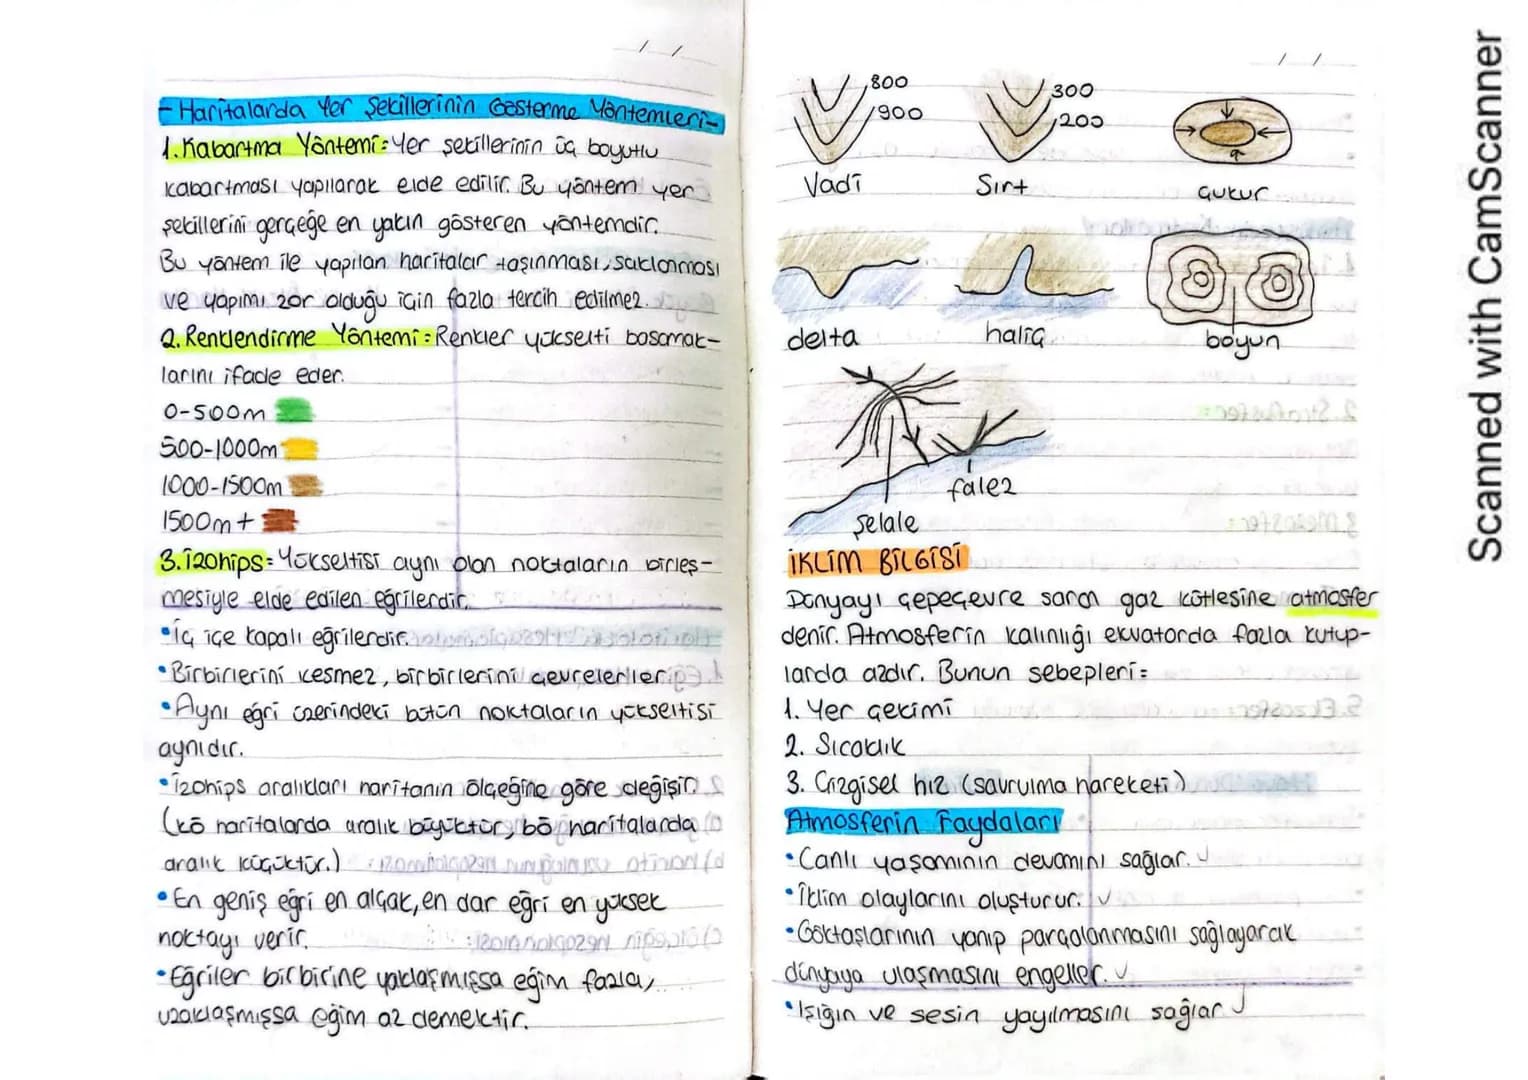 - Haritalarda Yer Şekillerinin Gösterme Yöntemleri -
1. Kabartma Yöntemi: Yer şekillerinin üç boyutlu
kabartması yapılarak elde edilir. Bu yöntem yer
şekillerini gerçeğe en yakın gösteren yöntemdir.
Bu yöntem ile yapılan haritalar taşınması, saklanması
ve yapımı zor olduğu için fazla tercih edilmez.
2. Renklendirme Yöntemi: Renkler yükselti basamak-
larını ifade eder.
0-500m
500-1000m
1000-1500m
1500m+
3. İzohips: Yükseltisi aynı olan noktaların birleş-
mesiyle elde edilen eğrilerdir.
• İç içe kapalı eğrilerdir.
• Birbirlerini kesmez, birbirlerini çevrelerler
• Aynı eğri üzerindeki bütün noktaların yükseltisi
aynıdır.
• İzohips aralıkları haritanın ölçeğine göre değişir
(kö haritalarda aralık büyüktür, bö haritalarda
aralık küçüktür.)
• En geniş eğri en alçak, en dar eğri en yüksek
noktayı verir.
• Eğriler birbirine yaklaşmışsa eğim fazla,
uzaklaşmışsa eğim az demektir.
800
900
Vadi
300
200
Sırt
çukur
delta
haliç
boyun
falez
şelale
İKLİM BİLGİSİ
Dünyayı çepeçevre saran gaz kütlesine atmosfer
denir. Atmosferin kalınlığı ekvatorda fazla kutup-
larda azdır. Bunun sebepleri:
1. Yer çekimi
2. Sıcaklık
3. Çizgisel hız (savrulma hareketi)
Atmosferin Faydaları
• Canlı yaşamının devamını sağlar. ✓
• İklim olaylarını oluşturur. ✓
• Göktaşlarının yanıp parçalanmasını sağlayarak
dünyaya ulaşmasını engeller. ✓
• Işığın ve sesin yayılmasını sağlar ✓
Scanned with CamScanner